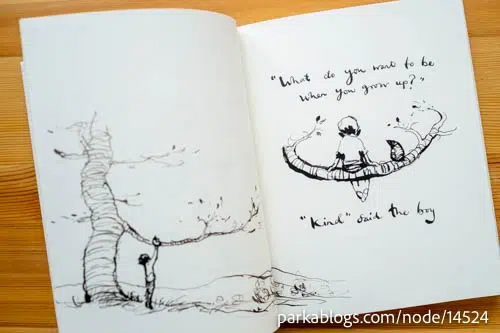 "What do you want to be
when you grow up?"
"Kind" said the boy
parkablogs.com/node/14524